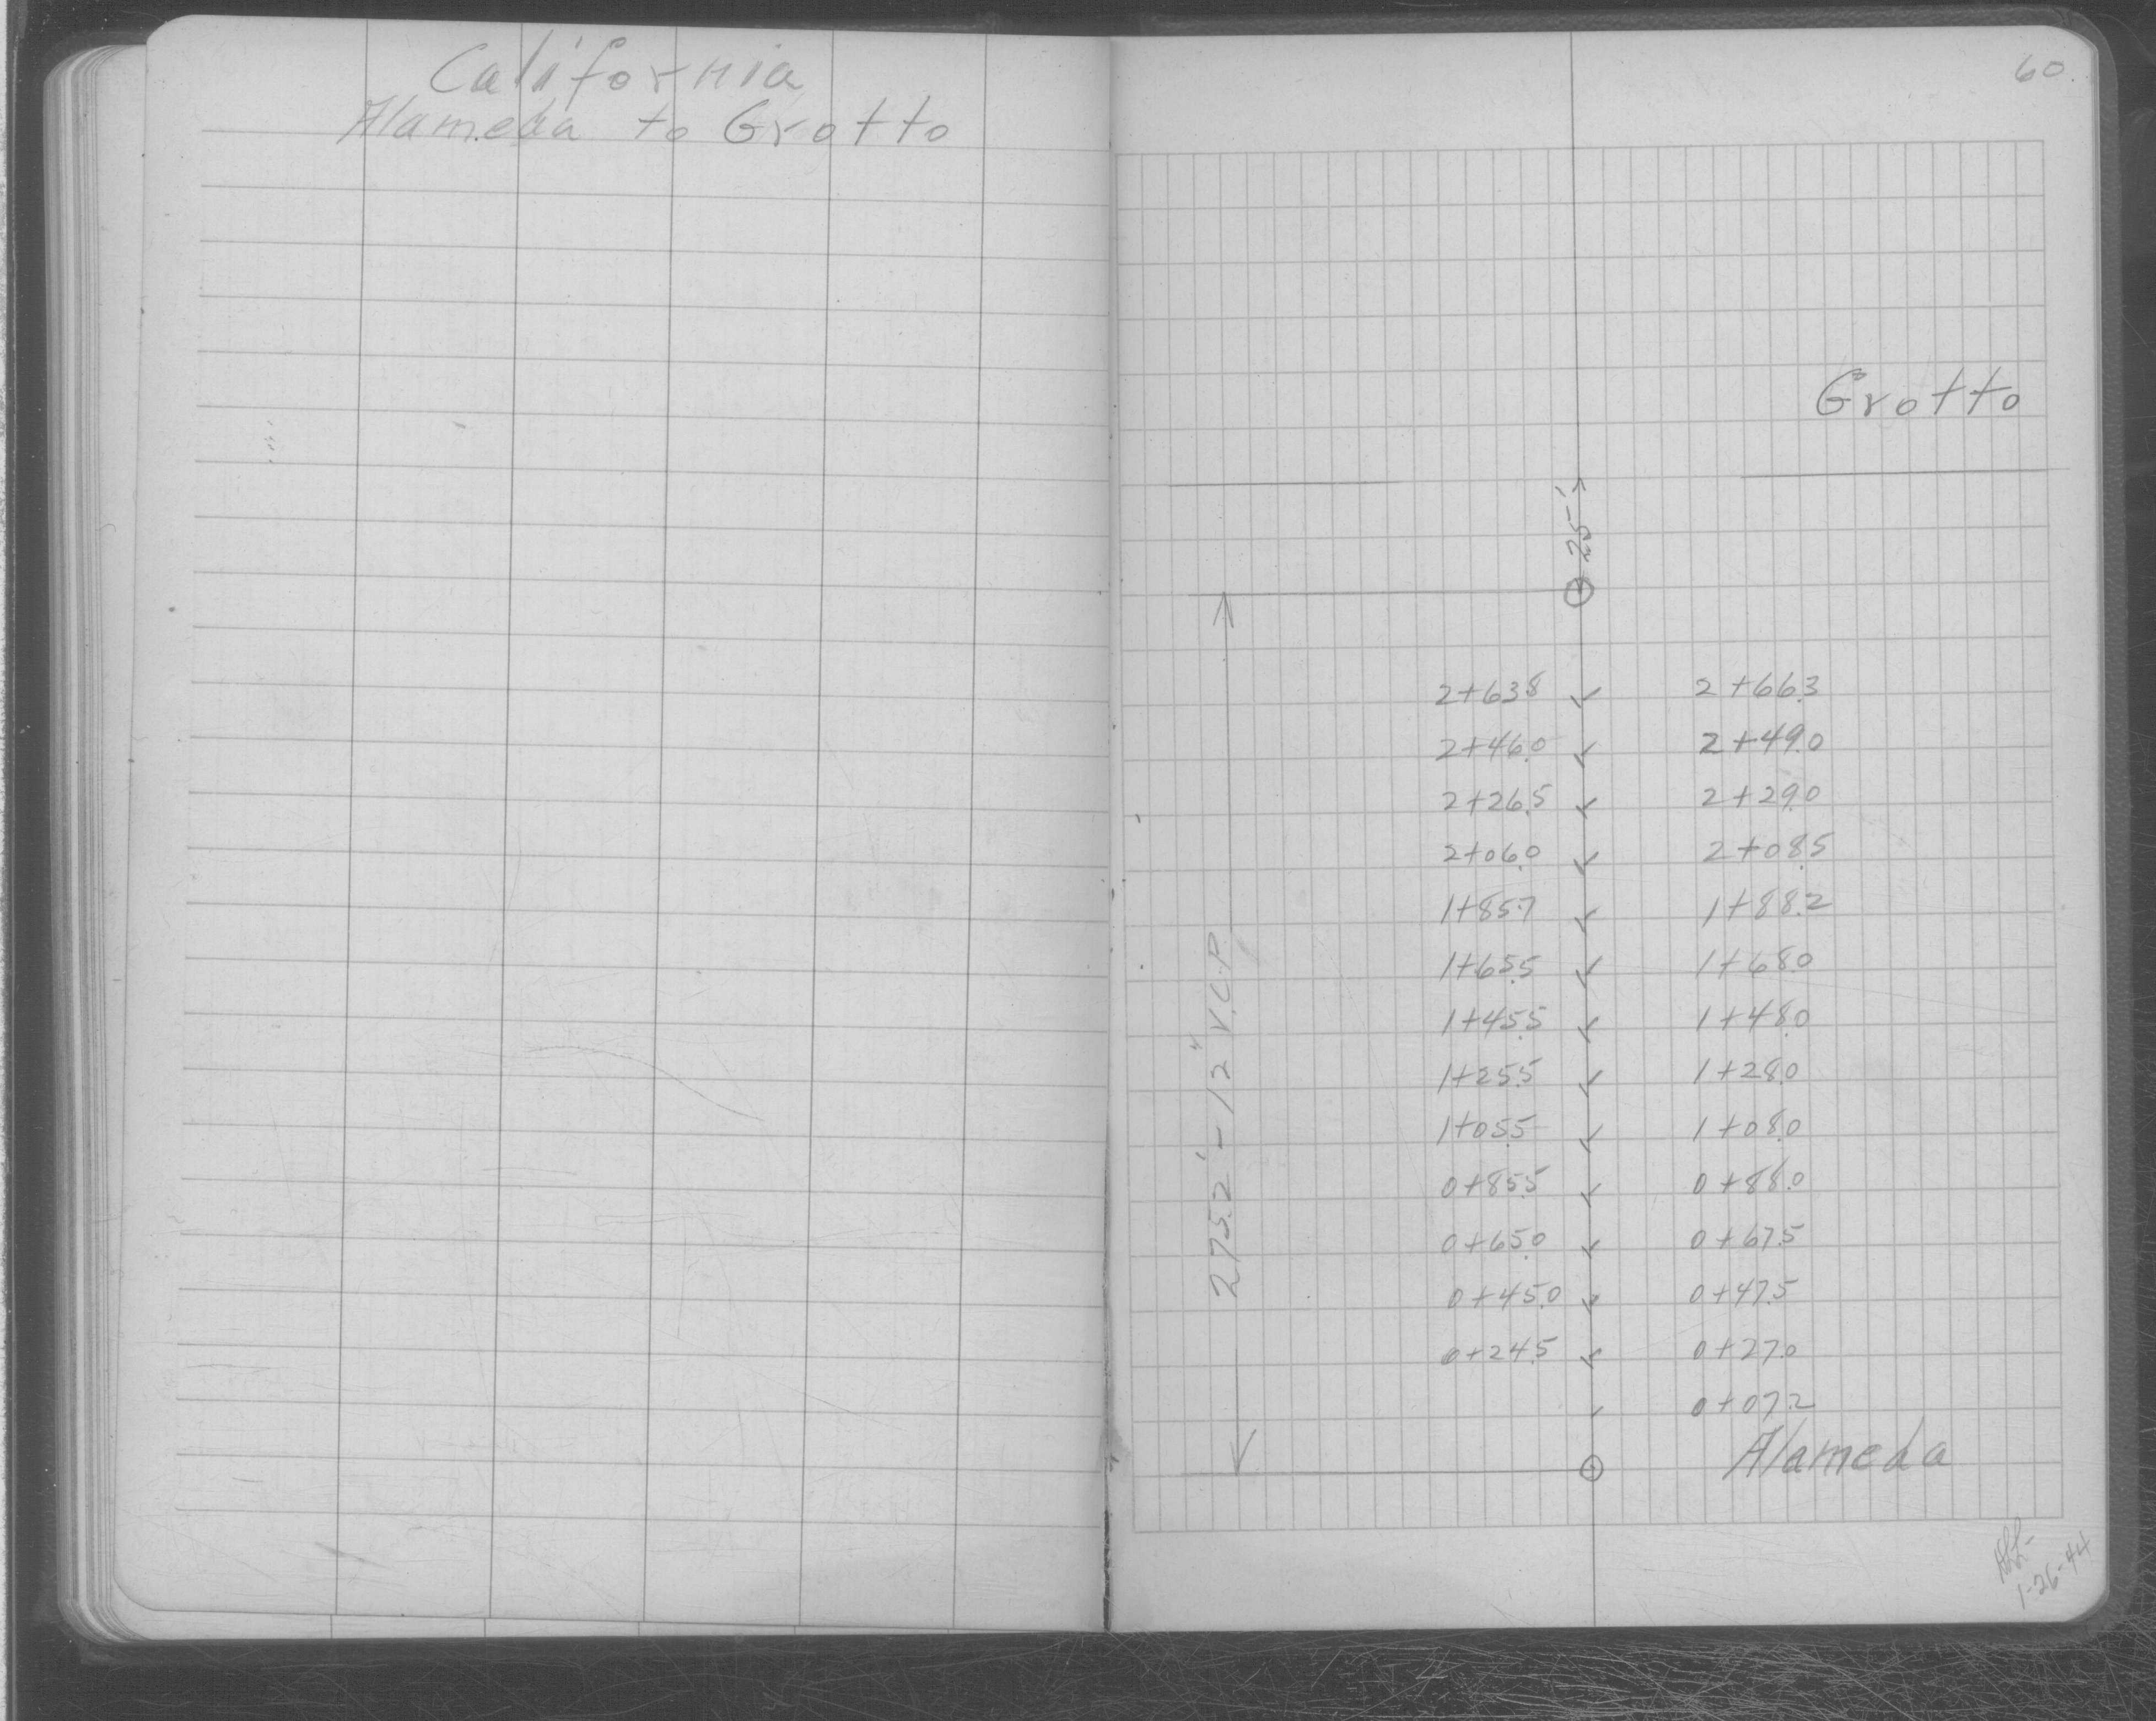 California
Alameda to Grotto
60.
Grotto
25'
2+63.8 2+66.3
2+46.0 2+49.0
2+26.5 2+29.0
2+06.0 2+08.5
1+85.7 1+88.2
1+65.5 1+68.0
1+45.5 1+48.0
1+25.5 1+28.0
1+05.5 1+08.0
0+85.5 0+88.0
0+65.0 0+67.5
0+45.0 0+47.5
0+24.5 0+27.0
0+07.2
275.2' - 12" V.C.P.
Alameda
1-26-44